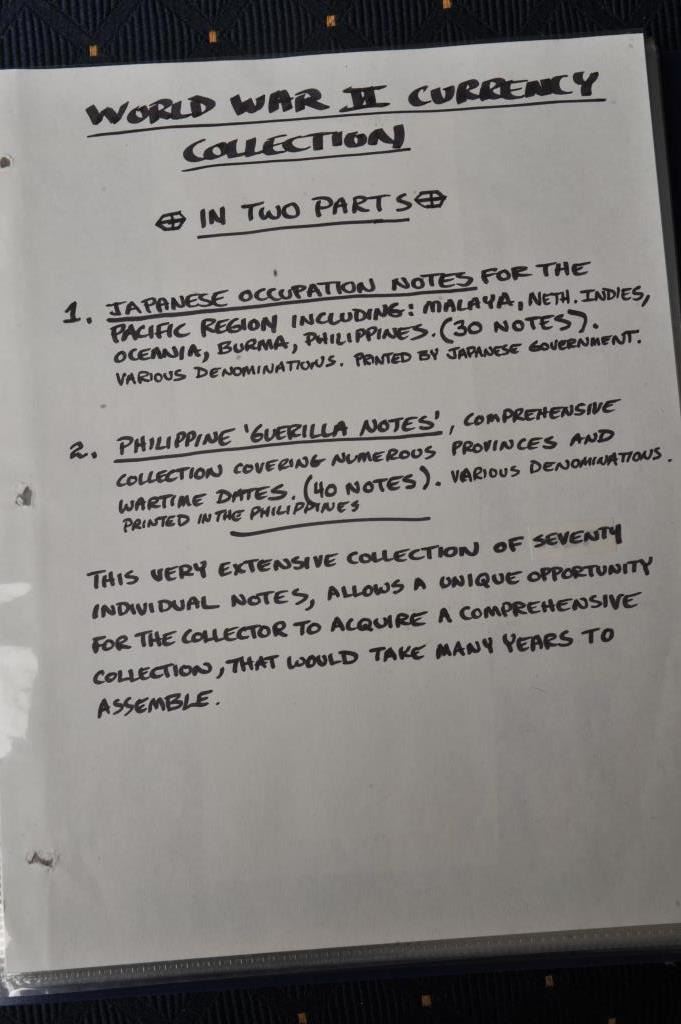 WORLD WAR II CURRENCY
COLLECTION
IN TWO PARTS
1. JAPANESE OCCUPATION NOTES FOR THE
PACIFIC REGION INCLUDING: MALAYA, NETH. INDIES,
OCEANIA, BURMA, PHILIPPINES. (30 NOTES).
VARIOUS DENOMINATIONS. PRINTED BY JAPANESE GOVERNMENT.
2. PHILIPPINE 'GUERILLA NOTES', COMPREHENSIVE
COLLECTION COVERING NUMEROUS PROVINCES AND
WARTIME DATES. (40 NOTES). VARIOUS DENOMINATIONS.
PRINTED IN THE PHILIPPINES
THIS VERY EXTENSIVE COLLECTION OF SEVENTY
INDIVIDUAL NOTES, ALLOWS A UNIQUE OPPORTUNITY
FOR THE COLLECTOR TO ACQUIRE A COMPREHENSIVE
COLLECTION, THAT WOULD TAKE MANY YEARS TO
ASSEMBLE.